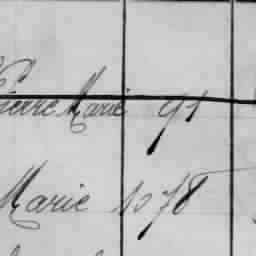 Pierre Marie 91
Marie 1078